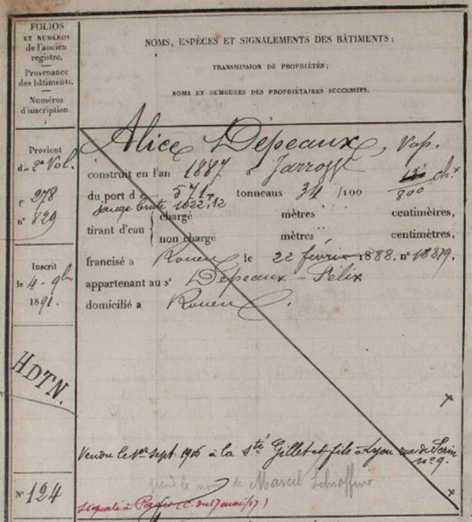 FOLIOS
ET NUMÉROS
de l'ancien
registre.
Provenance
des bâtiments.
Numéros
d'inscription
NOMS, ESPÈCES ET SIGNALEMENTS DES BÂTIMENTS;
TRANSMISSION DE PROPRIÉTÉS;
NOMS ET DEMEURES DES PROPRIÉTAIRES SUCCESSIFS.
Provient
du 2e Vol.
f° 278
n° 829
Alice Dépeaux, Vap.
construit en l'an 1887 à Jarrow
800 chx
du port de 571 tonneaux 34 /100
Jauge brute 1022,12
tirant d'eau chargé mètres " centimètres,
non chargé mètres " centimètres,
francisé à Rouen, le 22 février 1888, n° 18319.
appartenant au sr Dépeaux - Félix
domicilié à Rouen.
Inscrit
le 4 - 9b
1891.
HDTN.
Vendu le 1er Sept. 1916 à la Sté Gillet et fils à Lyon
n° 9.
N° 124
prend le nom de Marcel Schiaffino
signalé à Paris (C. du 17 mai /17)